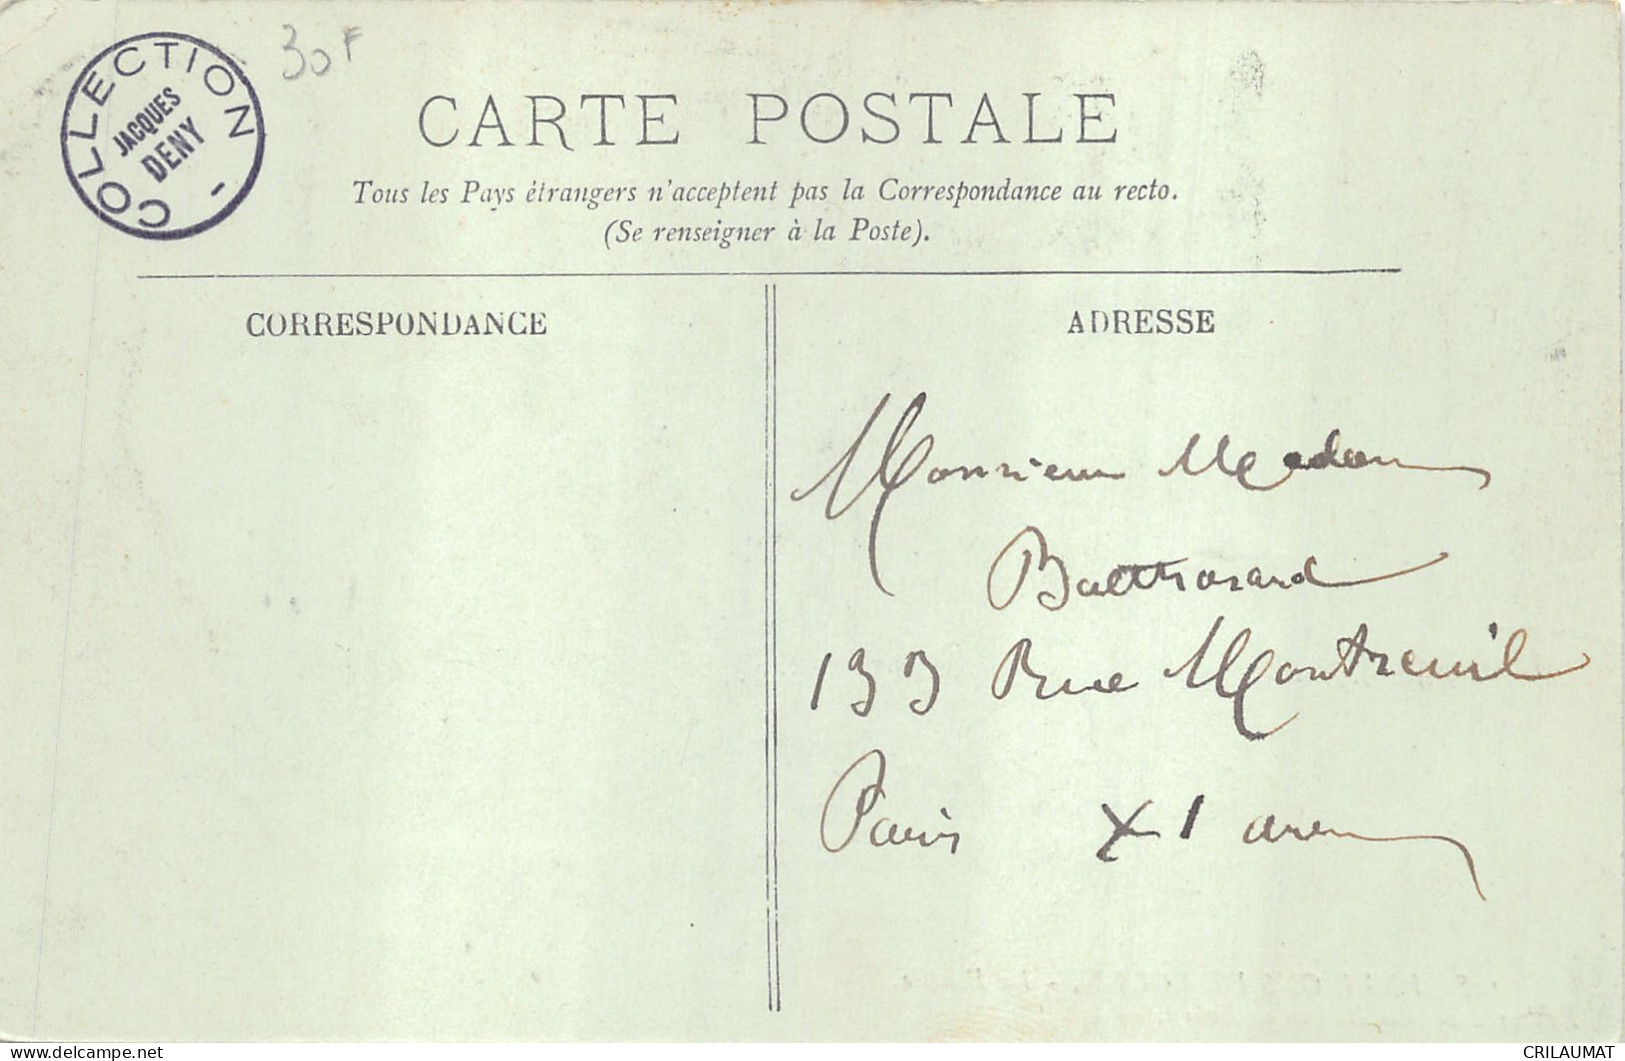 COLLECTION -
JACQUES
DENY
30 F
CARTE POSTALE
Tous les Pays étrangers n'acceptent pas la Correspondance au recto.
(Se renseigner à la Poste).
CORRESPONDANCE
ADRESSE
Monsieur Madam
133 Rue Montreuil
Paris XI arr
www.delcampe.net
CRILAUMAT